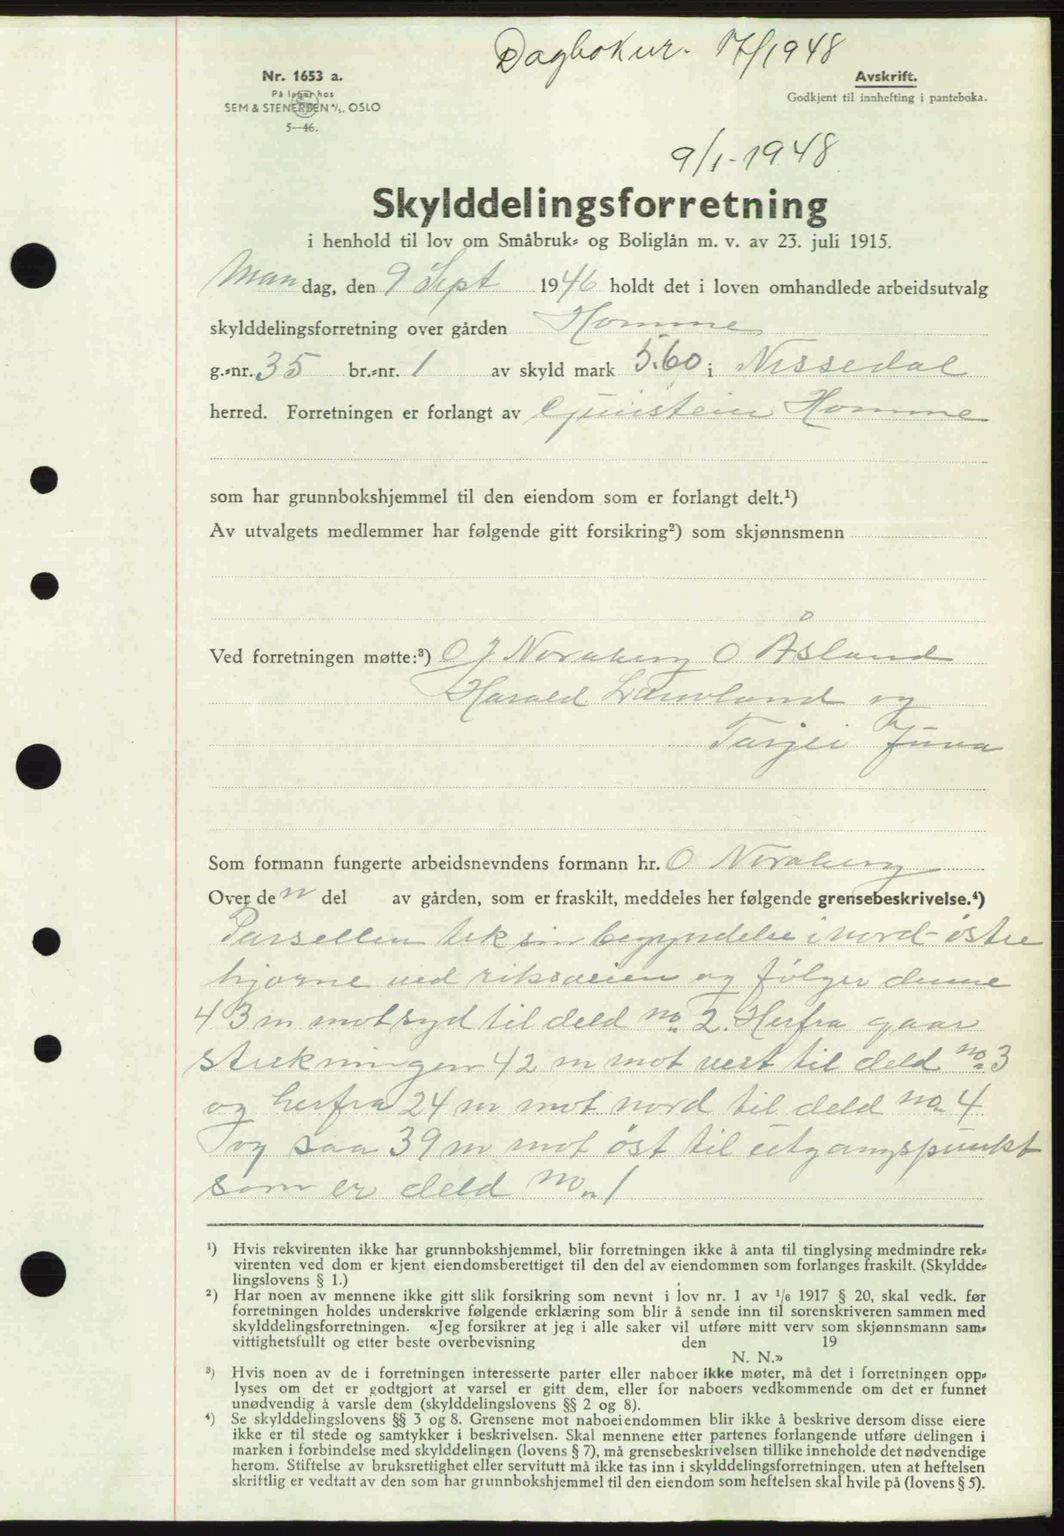 Dagboknr. 17/1948
Nr. 1653 a.
På lager hos
SEM & STENERSEN A/S. OSLO
5—46.
Avskrift.
Godkjent til innhefting i panteboka.
9/1-1948
Skylddelingsforretning
i henhold til lov om Småbruk- og Boliglån m. v. av 23. juli 1915.
Mandag, den 9 Sept 1946 holdt det i loven omhandlede arbeidsutvalg
skylddelingsforretning over gården Homme
g.-nr. 35 br.-nr. 1 av skyld mark 5.60 i Nissedal
herred. Forretningen er forlangt av Gunstein Homme
som har grunnbokshjemmel til den eiendom som er forlangt delt.¹)
Av utvalgets medlemmer har følgende gitt forsikring²) som skjønnsmenn
Ved forretningen møtte:³) O J Noraberg O Åsland
Harald og
Tarjei Juva
Som formann fungerte arbeidsnevndens formann hr. O Noraberg
Over den del av gården, som er fraskilt, meddeles her følgende grensebeskrivelse.⁴)
Parsellen tek sin begyndelse i nord-östre
hjörne ved riksveien og fölger denne
43 m mot syd til deld no. 2. Herfra gaar
strekningen 42 m mot vest til deld no. 3
og herfra 24 m mot nord til deld no. 4
og saa 39 m mot öst til utgangspunkt
som er deld no. 1
¹) Hvis rekvirenten ikke har grunnbokshjemmel, blir forretningen ikke å anta til tinglysing medmindre rek-
virenten ved dom er kjent eiendomsberettiget til den del av eiendommen som forlanges fraskilt. (Skyldde-
lingslovens § 1.)
²) Har noen av mennene ikke gitt slik forsikring som nevnt i lov nr. 1 av 1/6 1917 § 20, skal vedk. før
forretningen holdes underskrive følgende erklæring som blir å sende inn til sorenskriveren sammen med
skylddelingsforretningen. «Jeg forsikrer at jeg i alle saker vil utføre mitt verv som skjønnsmann sam-
vittighetsfullt og etter beste overbevisning den 19
N. N.»
³) Hvis noen av de i forretningen interesserte parter eller naboer ikke møter, må det i forretningen opp-
lyses om det er godtgjort at varsel er gitt dem, eller for naboers vedkommende om det er funnet
unødvendig å varsle dem (skylddelingslovens §§ 2 og 8).
⁴) Se skylddelingslovens §§ 3 og 8. Grensene mot naboeiendommen blir ikke å beskrive dersom disse eiere
ikke er til stede og samtykker i beskrivelsen. Skal mennene etter partenes forlangende utføre delingen i
marken i forbindelse med skylddelingen (lovens § 7), må grensebeskrivelsen tillike inneholde det nødvendige
herom. Stiftelse av bruksrettighet eller servitutt må ikke tas inn i skylddelingsforretningen. uten at heftelsen
skriftlig er vedtatt av den som har grunnbokshjemmel til den eiendom som heftelsen skal hvile på (lovens § 5).